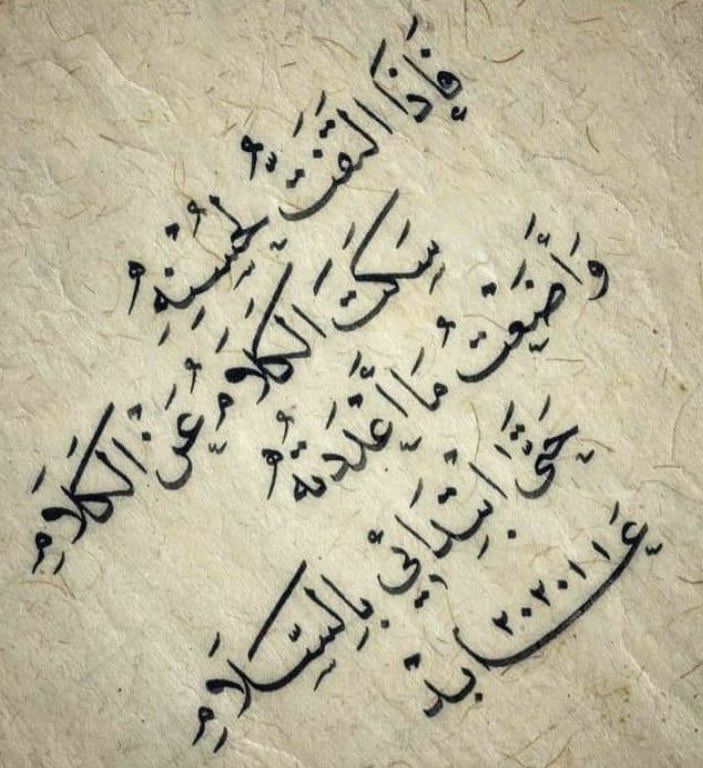 فَإِذَا التَفَتُّ لِحُسْنِهِ
سَكَتَ الكَلَامُ عَنِ الكَلَامِ
وَأَضَعْتُ مَا أَعْدَدتُهُ
حَتَّى ابْتَدَانِي بِالسَّلَامِ
عَابد ٢٠٢٠١١